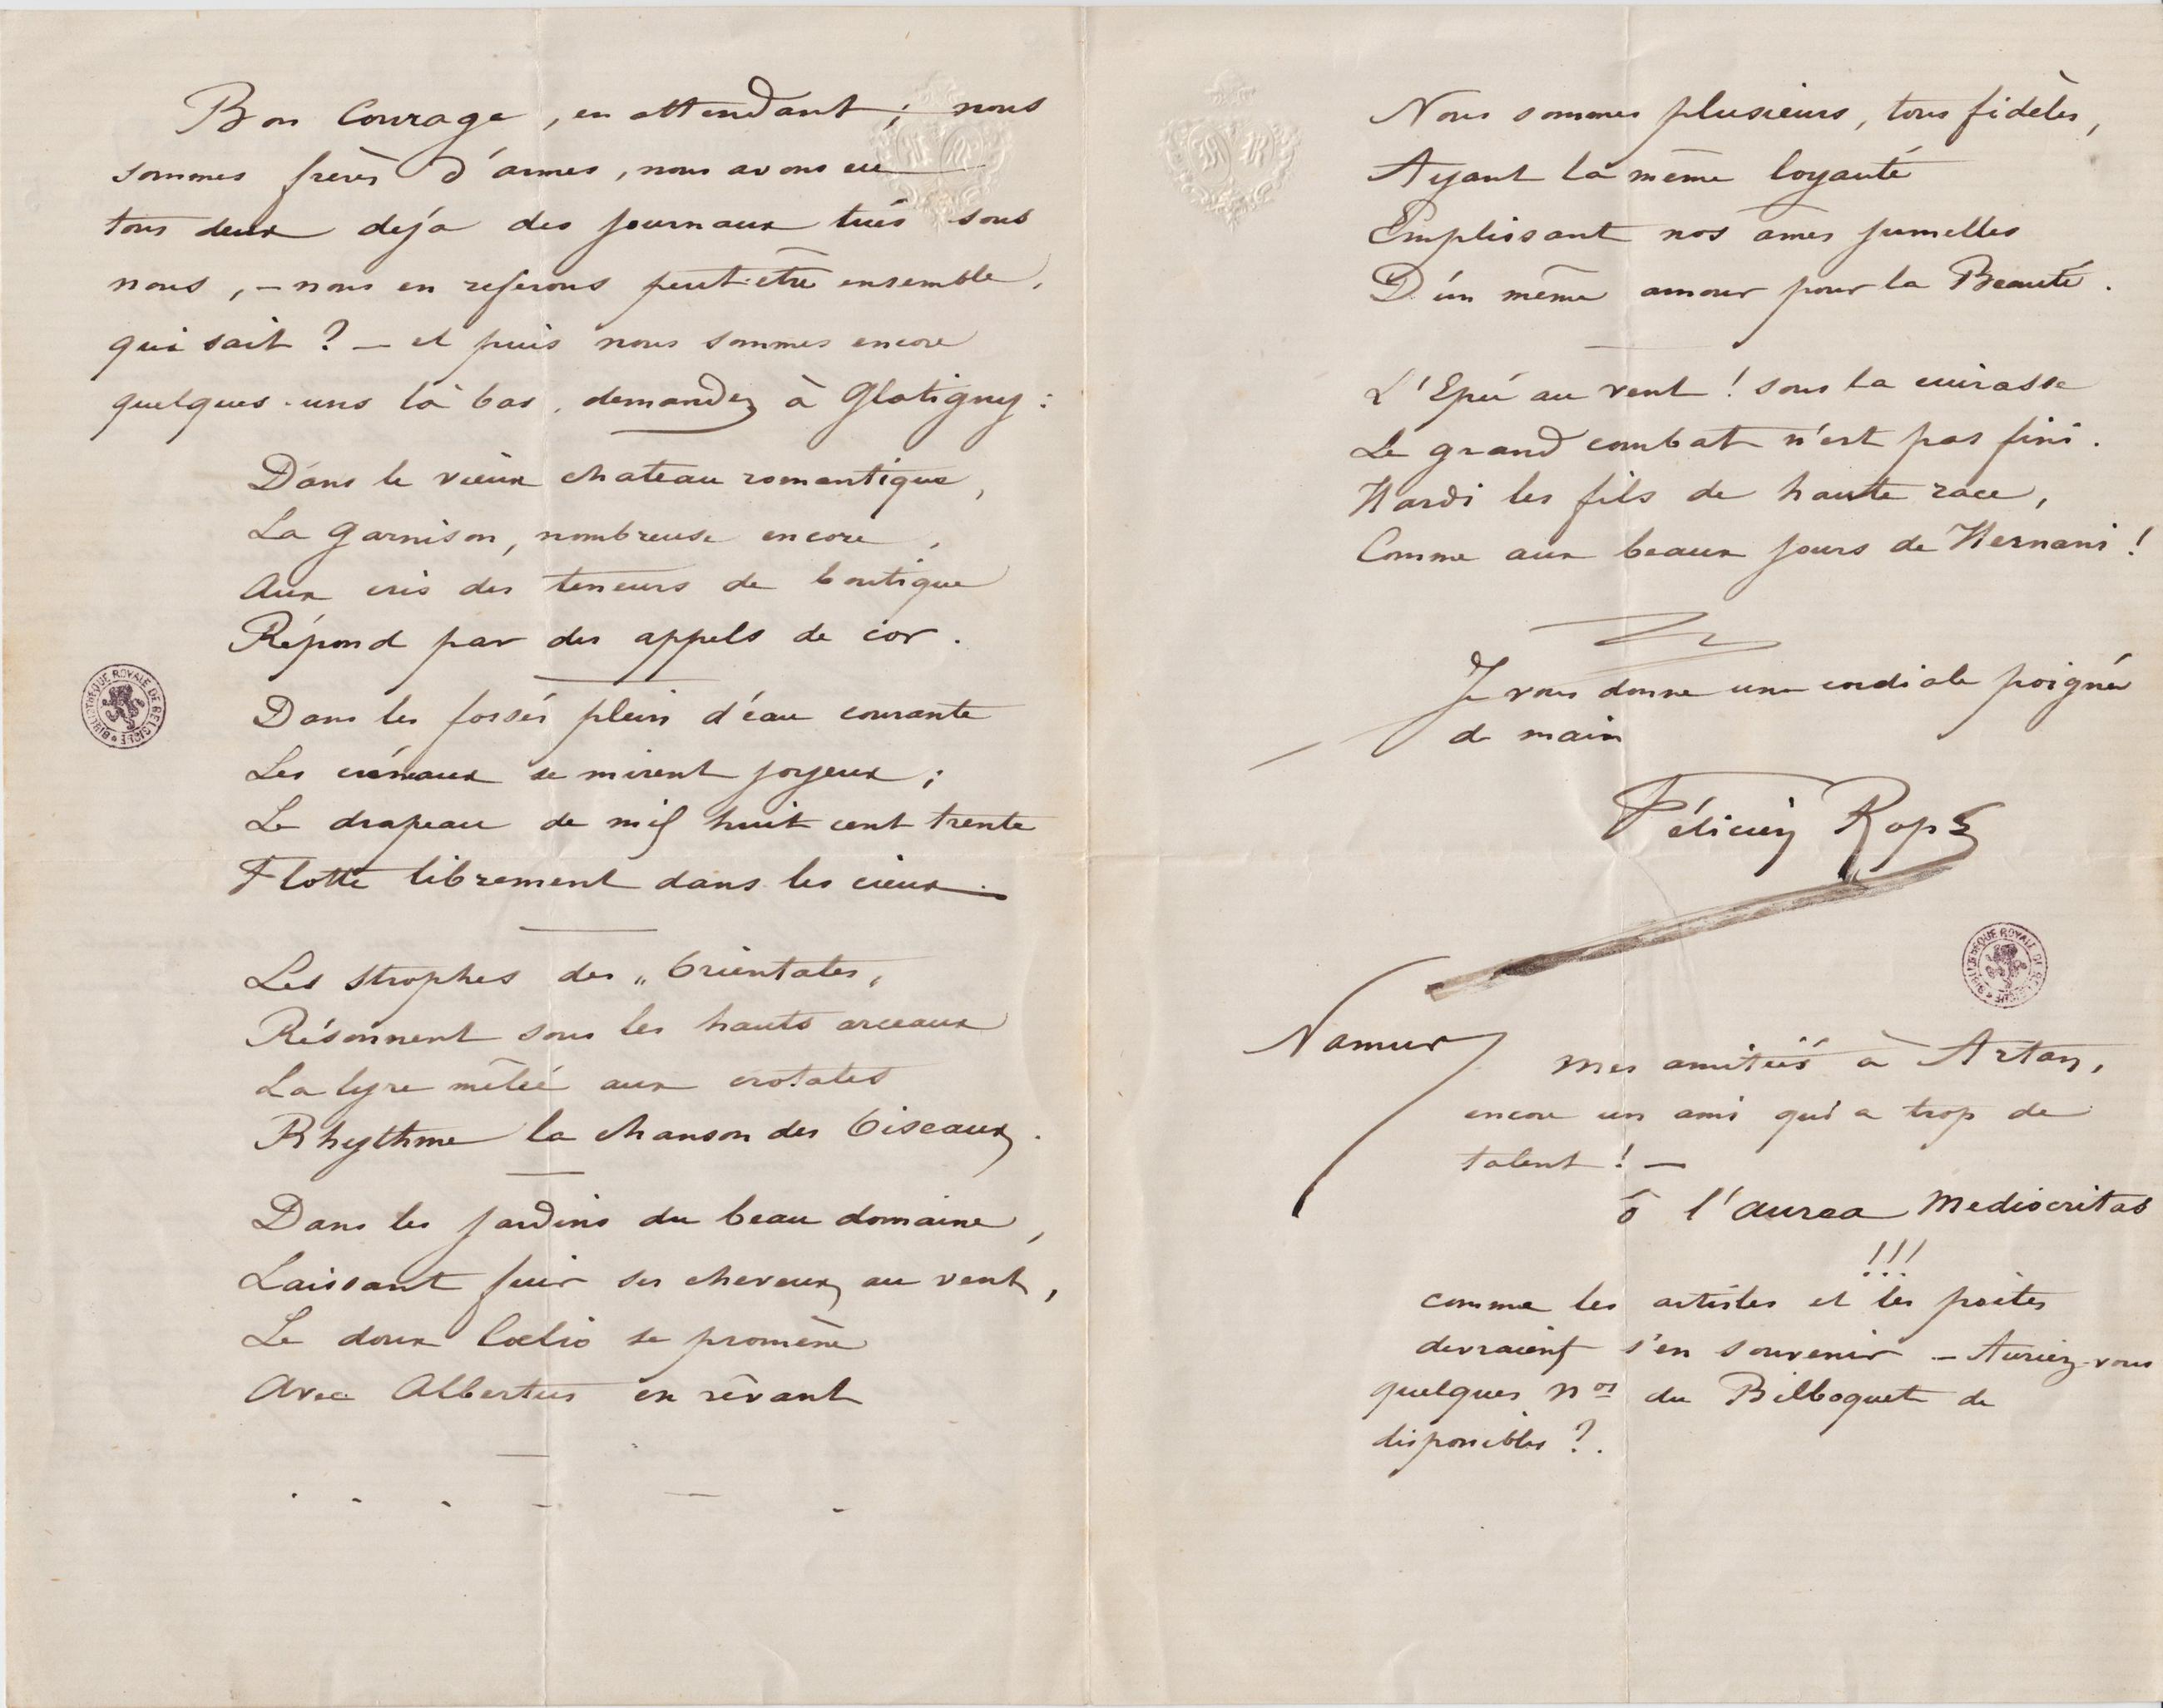 Bon Courage, en attendant ; nous
sommes frères d'armes, nous avons eu
tous deux déjà des journaux tués sous
nous, – nous en referons peut-être ensemble,
qui sait ? – et puis nous sommes encore
quelques-uns là bas, demandez à Glatigny :
Dans le vieux chateau romantique,
La garnison, nombreuse encore,
Aux cris des teneurs de boutique
Répond par des appels de cor.
Dans les fossés pleins d'éau courante
Les créneaux se mirent joyeux ;
Le drapeau de mil huit cent trente
Flotte librement dans les cieux.
Les strophes des „ Orientales „
Résonnent sous les hauts arceaux
La lyre mêlée aux crotales
Rhythme la chanson des Oiseaux.
Dans les jardins du beau domaine,
Laissant fuir ses cheveux au vent,
Le doux Cœlio se promène
Avec Albertus en rêvant
. . . . . .
Nous sommes plusieurs, tous fidèles,
Ayant la même loyauté
Emplissant nos âmes jumelles
D'un même amour pour la Beauté.
L'Epée au vent ! sous la cuirasse
Le grand combat n'est pas fini.
Hardi les fils de haute race,
Comme aux beaux jours de Hernani !
Je vous donne une cordiale poignée
de main
Félicien Rops
Namur
Mes amitiés à Artan,
encore un ami qui a trop de
talent ! –
ô l'Aurea Mediocritas
!!!
comme les artistes et les poètes
devraient s'en souvenir – Auriez-vous
quelques nos du Bilboquet de
disponibles ?.
BIBLIOTHÈQUE ROYALE DE BELGIQUE
BIBLIOTHÈQUE ROYALE DE BELGIQUE